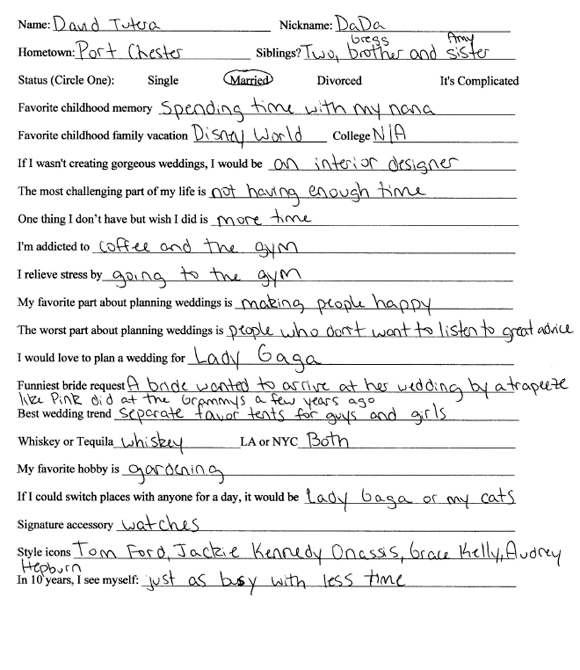 Name: David Tutera Nickname: DaDa
Hometown: Port Chester Siblings? Two, brother Greg and sister Amy
Status (Circle One): Single Married Divorced It's Complicated
Favorite childhood memory spending time with my nana
Favorite childhood family vacation Disney World College N/A
If I wasn't creating gorgeous weddings, I would be an interior designer
The most challenging part of my life is not having enough time
One thing I don't have but wish I did is more time
I'm addicted to coffee and the gym
I relieve stress by going to the gym
My favorite part about planning weddings is making people happy
The worst part about planning weddings is people who don't want to listen to great advice
I would love to plan a wedding for Lady Gaga
Funniest bride request A bride wanted to arrive at her wedding by a trapeeze
like Pink did at the Grammys a few years ago
Best wedding trend separate favor tents for guys and girls
Whiskey or Tequila whiskey LA or NYC Both
My favorite hobby is gardening
If I could switch places with anyone for a day, it would be Lady Gaga or my cats
Signature accessory watches
Style icons Tom Ford, Jackie Kennedy Onassis, Grace Kelly, Audrey
Hepburn
In 10 years, I see myself: just as busy with less time